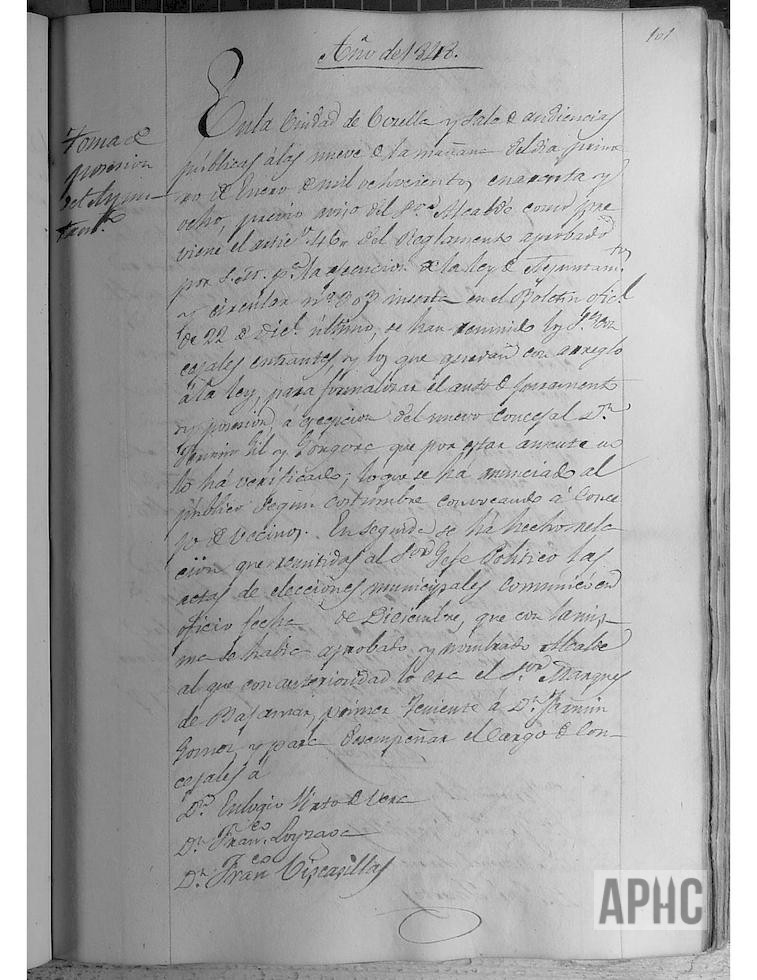 101
Año de 1848.
Toma de
posesion
del Ayun-
tam.to
En la Ciudad de Corella y Sala de audiencias
públicas á las nueve de la mañana del dia prime
ro de Enero de mil ochocientos cuarenta y
ocho, previo aviso del S.or Alcalde como pre
viene el artic.o 46 del Reglamento aprobado
por S.M. p.a la ejecucion de la ley de Ayuntam.tos
y circular n.o inserta en el Boletin ofic.l
de 22 de Dic.e último, se han reunido los S.res Con
cejales entrantes, y los que quedan con arreglo
á la ley, para formalizar el auto de juramento
y posesion, á excepcion del nuevo Concejal D.n
Fermin Gil y Góngora que por estar ausente no
lo há verificado; lo que se há anunciado al
público segun costumbre convocando á Conce
jo de vecinos. En seguida se ha hecho rela
cion que remitidas al S.or Gefe Politico las
actas de elecciones municipales comunicó en
oficio fecha de Diciembre, que con la mis-
ma se habia aprobado y nombrado Alcalde
al que con anterioridad lo era el S.or Marques
de Bajamar, primer Teniente á D.n Fermin
Gomez, y para desempeñar el Cargo de Con-
cejales á
D.n Eulogio Virto de Vera
D.n Fran.co
D.n Fran.co Viscasillas
APHC